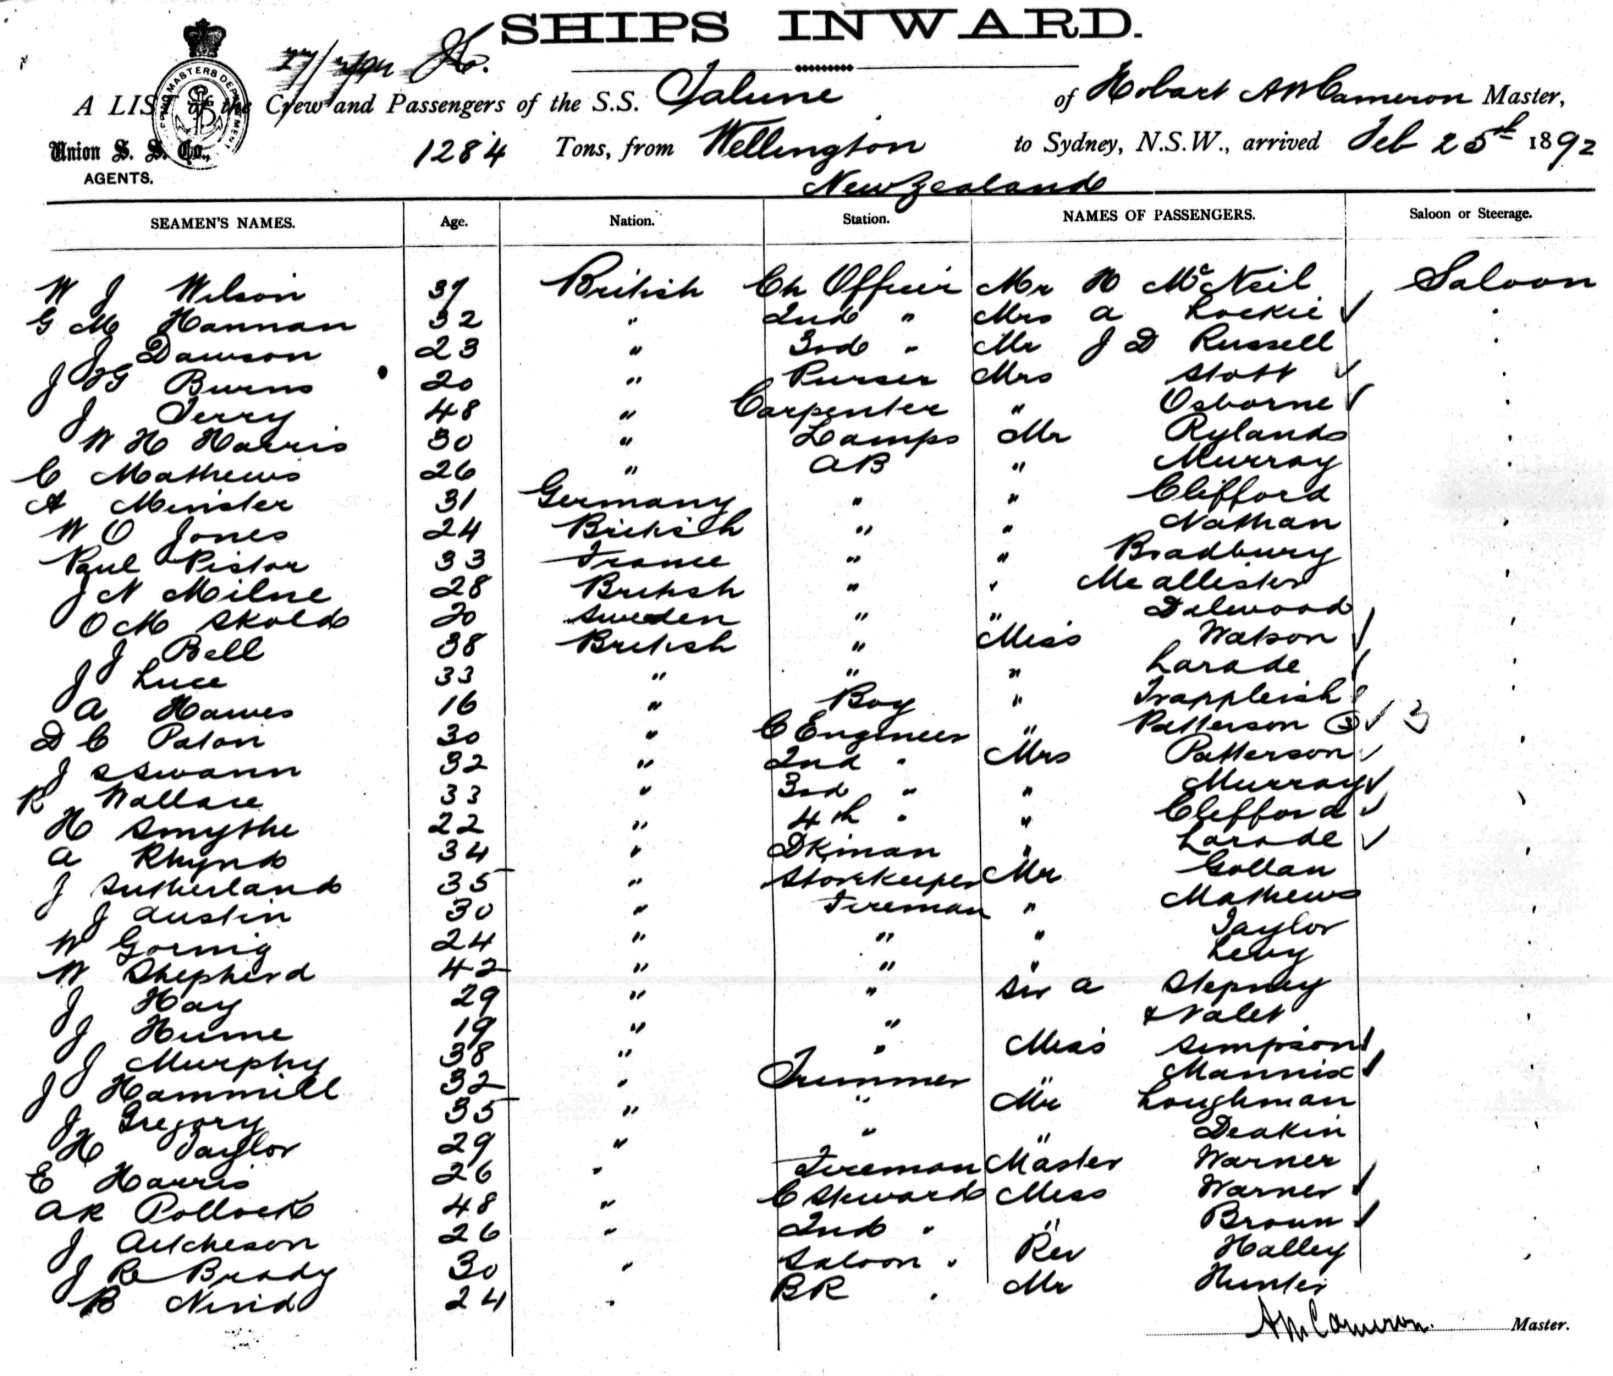 SHIPS INWARD.
A LIST of the Crew and Passengers of the S.S. Talune of Hobart A M Cameron Master,
Union S. S. Co., 1284 Tons, from Wellington to Sydney, N.S.W., arrived Feb 25th 1892
AGENTS. New Zealand
SEAMEN'S NAMES. Age. Nation. Station. NAMES OF PASSENGERS. Saloon or Steerage.
W J Wilson 37 British Ch Officer Mr H McNeil Saloon
G M Hannan 32 " 2nd " Mrs A Lockie ✓ "
J Dawson 23 " 3rd " Mr J D Russell "
J G Burns 20 " Purser Mrs Stott ✓ "
J Terry 48 " Carpenter " Osborne ✓ "
W H Harris 30 " Lamps Mr Rylands "
C Mathews 26 " AB " Murray "
A Minster 31 Germany " " Clifford "
W O Jones 24 British " " Nathan "
Paul Pistor 33 France " " Bradbury
J N Milne 28 British " " McAllister "
O M Skold 20 Sweden " " Dalwood
J Bell 38 British " Miss Watson ✓ "
J Luce 33 " " " Larade ✓ "
A Hawes 16 " Boy " Trappleish "
D C Paton 30 " C Engineer " Patterson ③ ✓ 3
J S Swann 32 " 2nd " Mrs Patterson ✓ "
R Wallace 33 " 3rd " " Murray ✓
H Smythe 22 " 4th " " Clifford ✓ "
A Rhynd 34 " Dkman " Larade ✓
J Sutherland 35 " Storekeeper Mr Gollan "
J Austin 30 " Fireman " Mathews
W Gorring 24 " " " Taylor "
W Shepherd 42 " " " Levy "
J Hay 29 " " Sir A Stepney "
J Hume 19 " " & Valet "
J Murphy 38 " " Miss Simpson ✓
J Hammill 32 " Trimmer " Mannix ✓ "
J Gregory 35 " " Mr Loughman "
H Taylor 29 " " " Deakin "
E Harris 26 " Fireman Master Warner "
A R Pollock 48 " C Steward Miss Warner ✓ "
J Aitcheson 26 " 2nd " " Broun ✓ "
J R Brady 30 " Saloon " Rev Halley "
B Nivid 24 " BR " Mr Hunter
A M Cameron. Master.